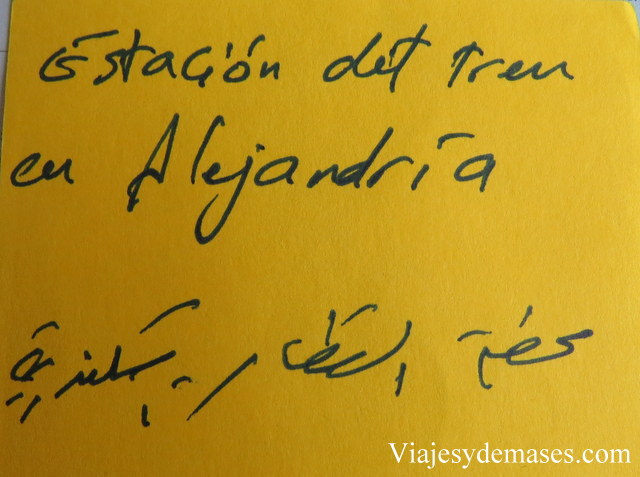 Estación del tren
en Alejandría
محطة القطار بإسكندرية
Viajesydemases.com